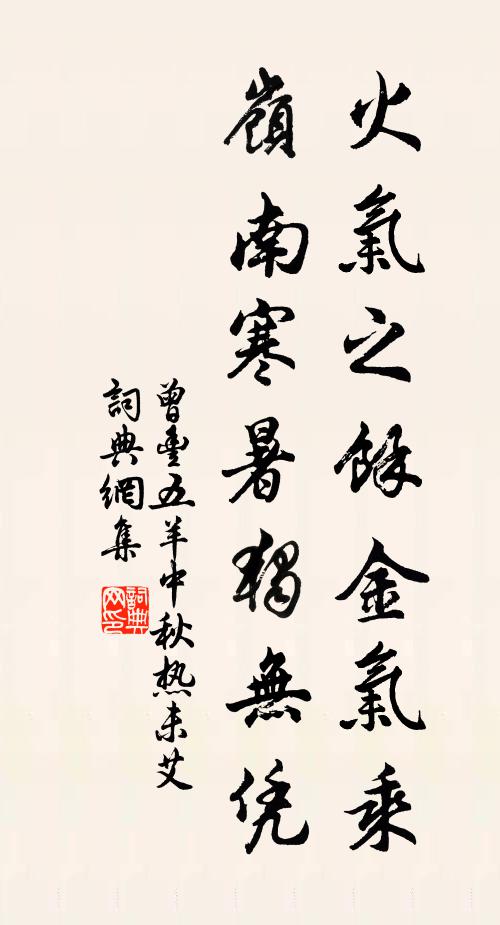 火氣之餘金氣乘
嶺南寒暑獨無凭
曾豐五羊中秋热未艾
詞典網集
詞典网印